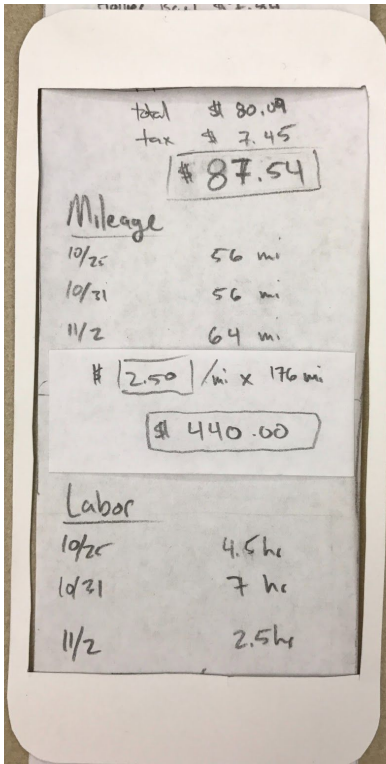 total $ 80.09
tax $ 7.45
$ 87.54
Mileage
10/25 56 mi
10/31 56 mi
11/2 64 mi
$ 2.50 /mi x 176 mi
$ 440.00
Labor
10/25 4.5 hr
10/31 7 hr
11/2 2.5 hr